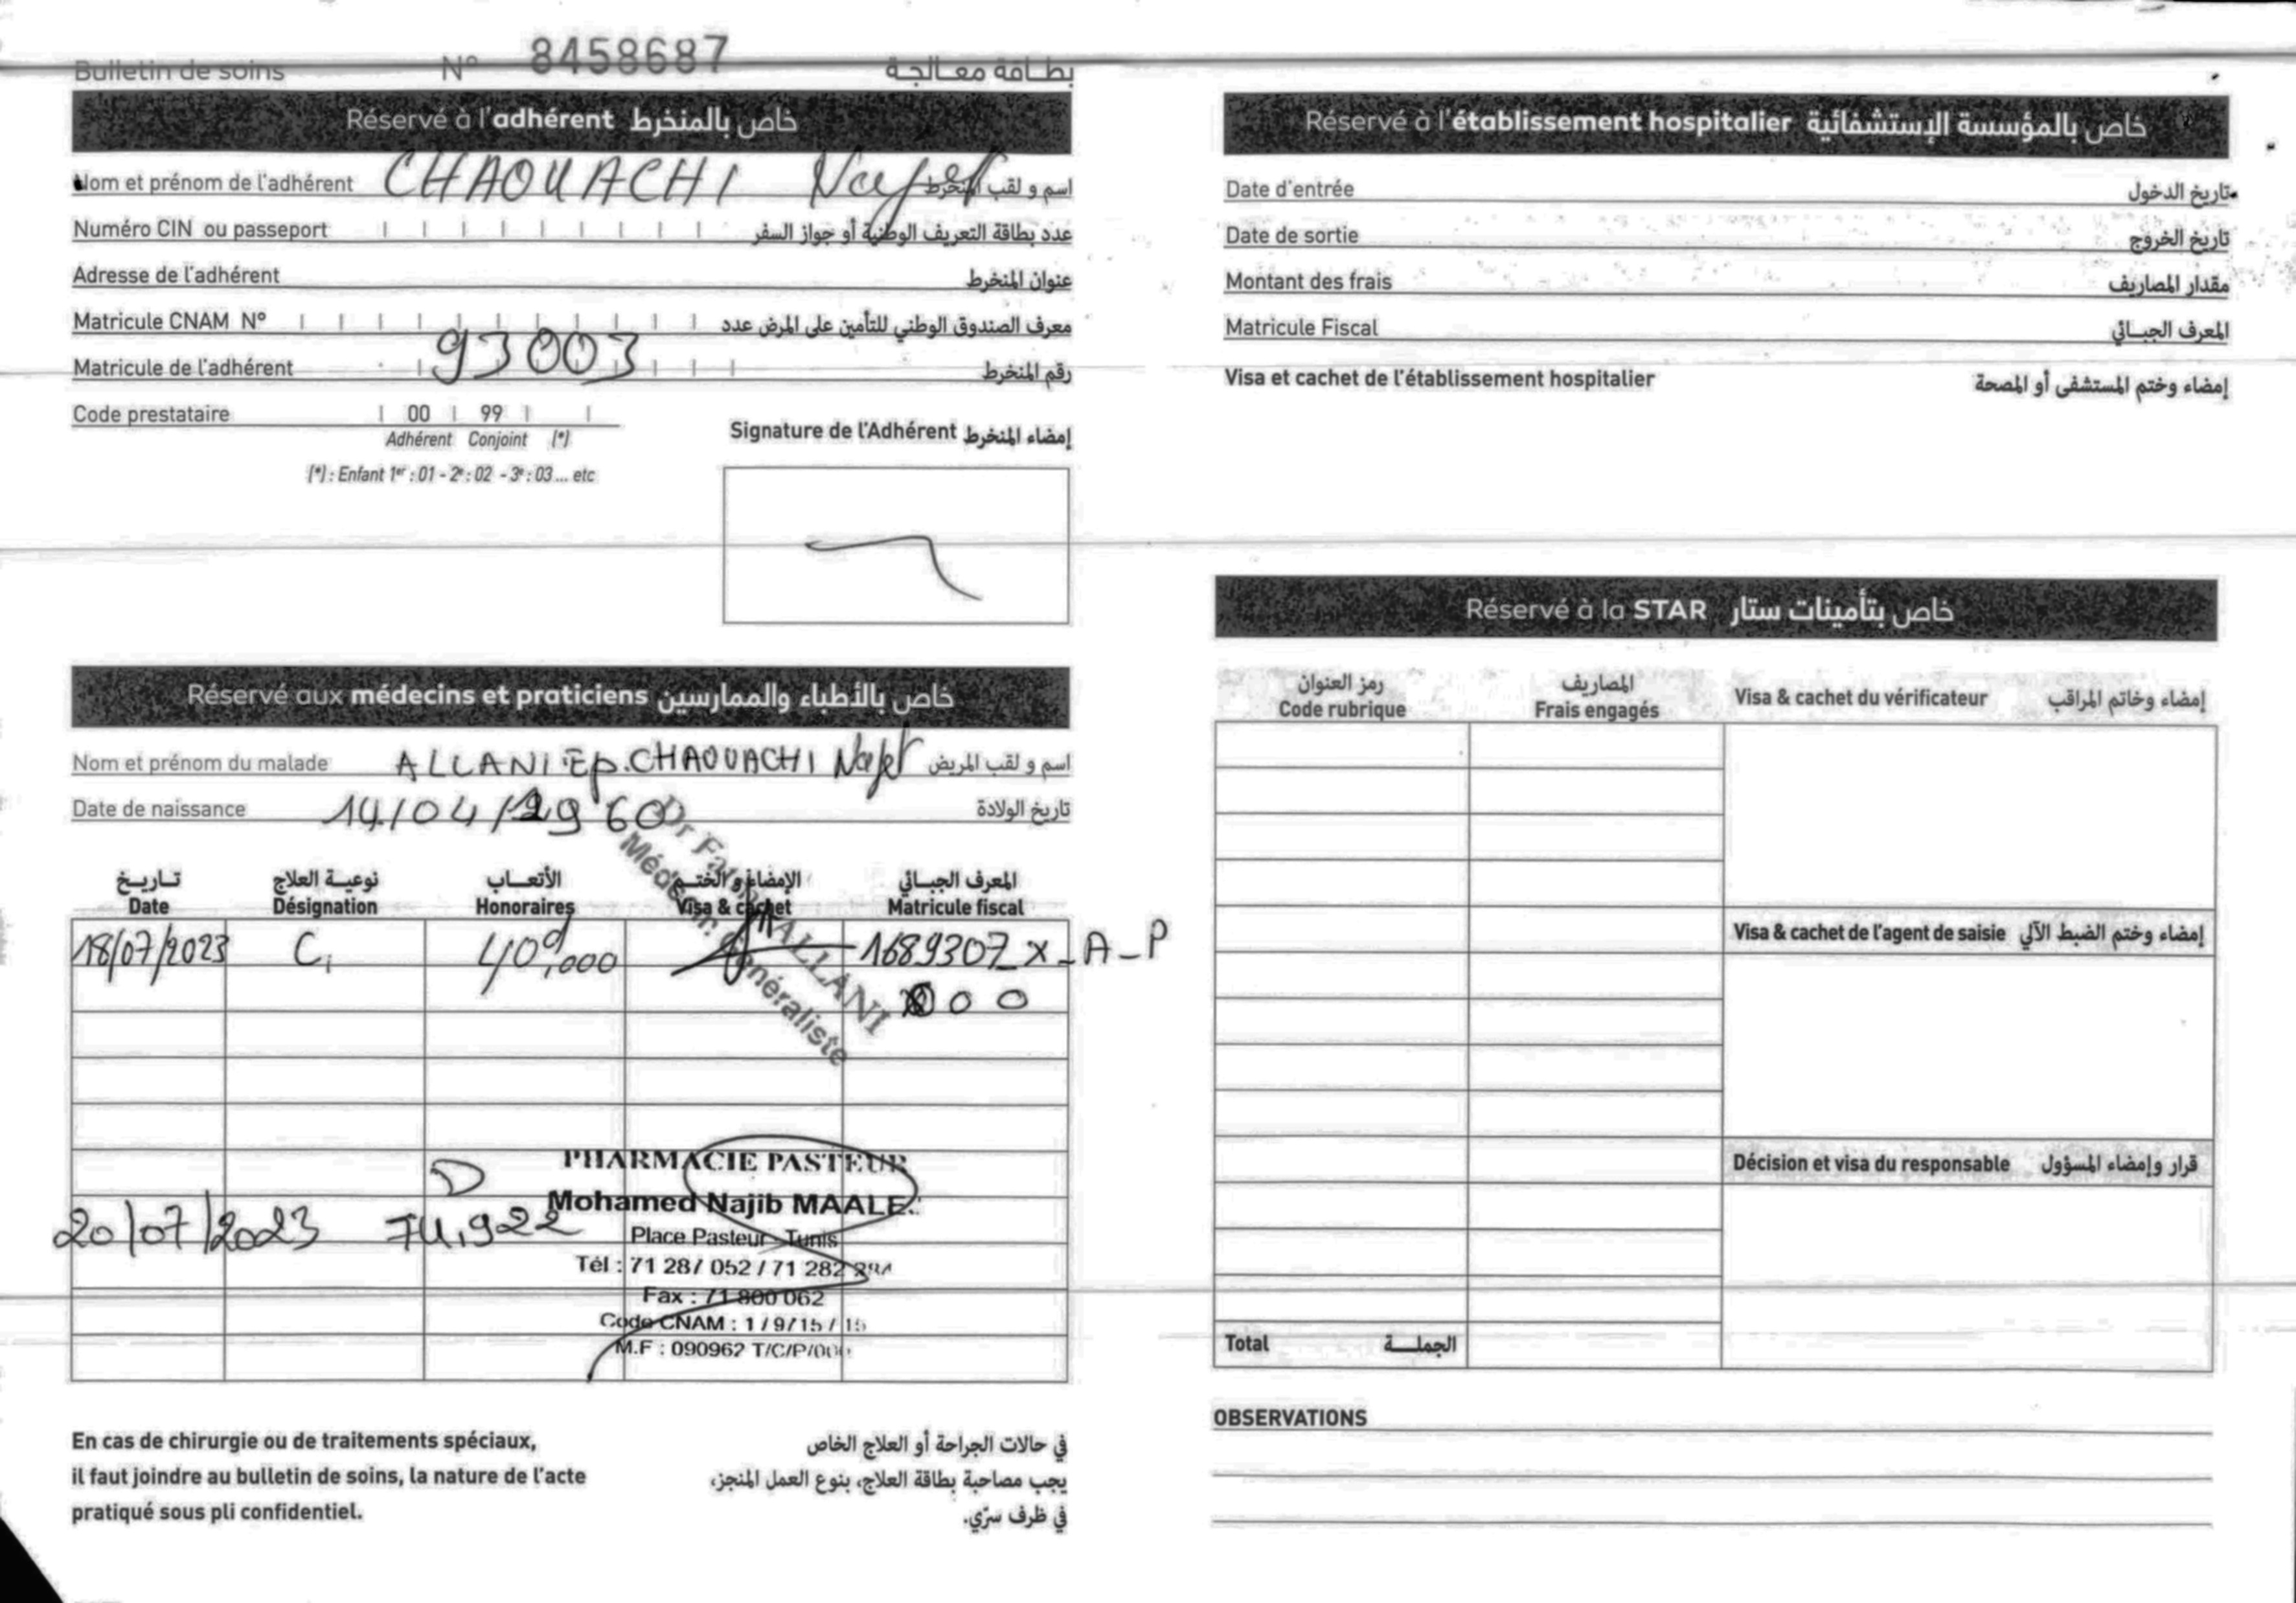 Bulletin de soins N° 8458687 بطاقة معالجة
Réservé à l'adhérent خاص بالمنخرط
Nom et prénom de l'adhérent CHAOUACHI Najet اسم و لقب المنخرط
Numéro CIN ou passeport عدد بطاقة التعريف الوطنية أو جواز السفر
Adresse de l'adhérent عنوان المنخرط
Matricule CNAM N° معرف الصندوق الوطني للتأمين على المرض عدد
Matricule de l'adhérent 93003 رقم المنخرط
Code prestataire 00 99
Adhérent Conjoint (*)
(*) : Enfant 1er : 01 - 2e : 02 - 3e : 03 ... etc
Signature de l'Adhérent إمضاء المنخرط
Réservé aux médecins et praticiens خاص بالأطباء والممارسين
Nom et prénom du malade ALLANI Ep. CHAOUACHI Najet اسم و لقب المريض
Date de naissance 14/04/1960 تاريخ الولادة
تاريخ نوعية العلاج الأتعاب الإمضاء و الختم المعرف الجبائي
Date Désignation Honoraires Visa & cachet Matricule fiscal
18/07/2023 C, 40d,000 1689307_X_A_P
000
Dr ALLANI
Médecin Généraliste
PHARMACIE PASTEUR
Mohamed Najib MAALEJ
20/07/2023 74,922
Place Pasteur - Tunis
Tél : 71 287 052 / 71 282 284
Fax : 71 800 062
Code CNAM : 1 / 9/15 / 15
M.F : 090962 T/C/P/000
En cas de chirurgie ou de traitements spéciaux,
il faut joindre au bulletin de soins, la nature de l'acte
pratiqué sous pli confidentiel.
في حالات الجراحة أو العلاج الخاص
يجب مصاحبة بطاقة العلاج، بنوع العمل المنجز،
في ظرف سرّي.
Réservé à l'établissement hospitalier خاص بالمؤسسة الإستشفائية
Date d'entrée تاريخ الدخول
Date de sortie تاريخ الخروج
Montant des frais مقدار المصاريف
Matricule Fiscal المعرف الجبائي
Visa et cachet de l'établissement hospitalier إمضاء وختم المستشفى أو المصحة
Réservé à la STAR خاص بتأمينات ستار
رمز العنوان المصاريف
Code rubrique Frais engagés Visa & cachet du vérificateur إمضاء وخاتم المراقب
Visa & cachet de l'agent de saisie إمضاء وختم الضبط الآلي
Décision et visa du responsable قرار وإمضاء المسؤول
Total الجملة
OBSERVATIONS